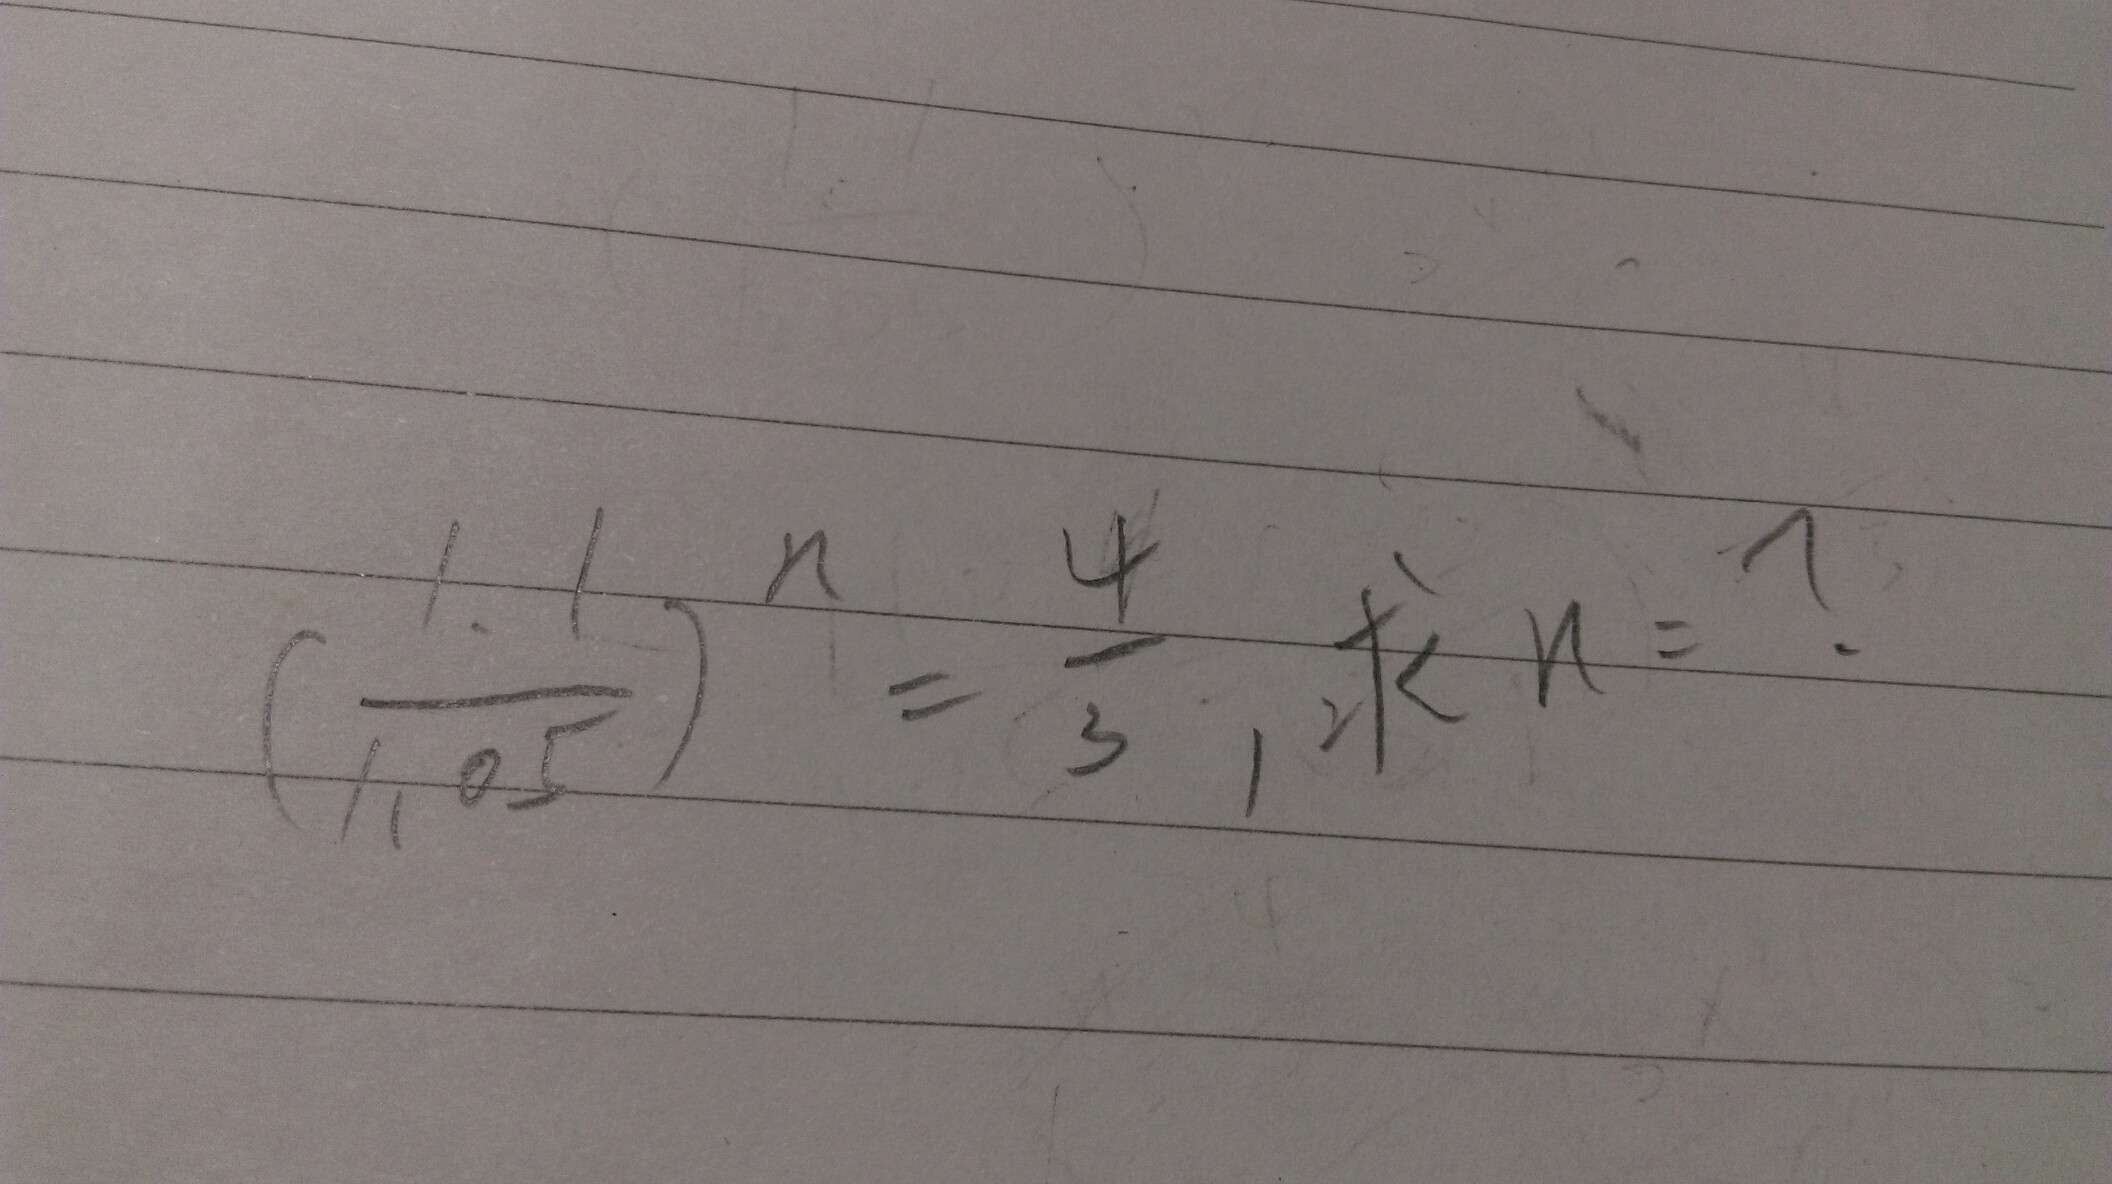 (1.1/1.05)^n = 4/3, 求 n = ?